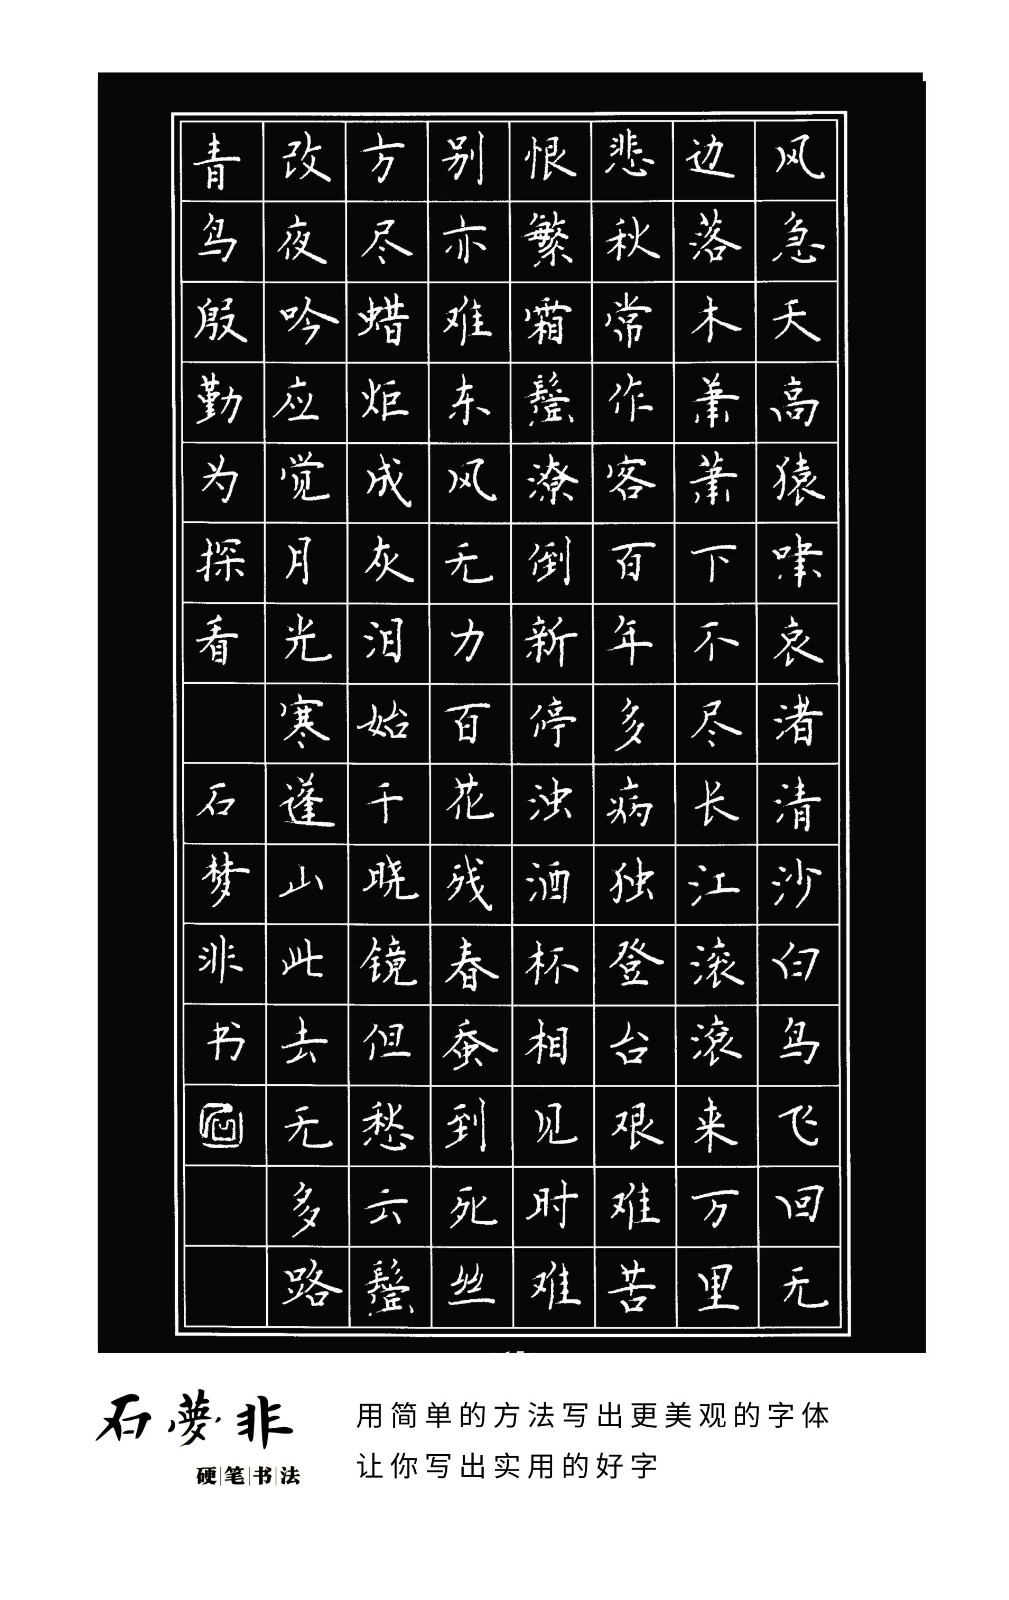 风急天高猿啸哀渚清沙白鸟飞回无
边落木萧萧下不尽长江滚滚来万里
悲秋常作客百年多病独登台艰难苦
恨繁霜鬓潦倒新停浊酒杯相见时难
别亦难东风无力百花残春蚕到死丝
方尽蜡炬成灰泪始干晓镜但愁云鬓
改夜吟应觉月光寒蓬山此去无多路
青鸟殷勤为探看 石梦非书
石夢非
硬笔书法
用简单的方法写出更美观的字体
让你写出实用的好字